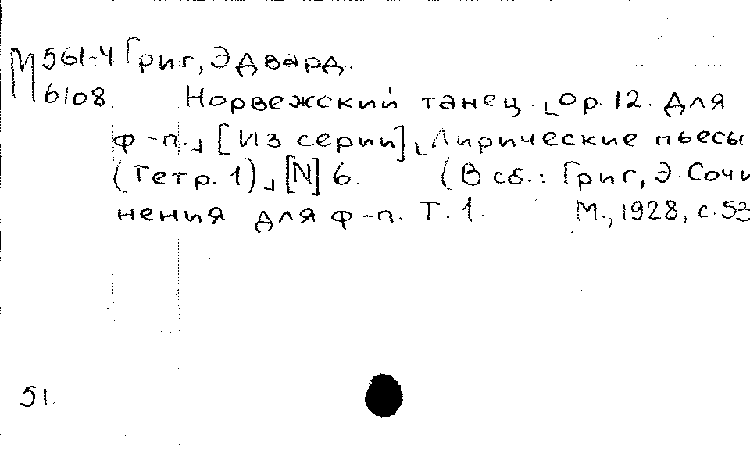 М 561-4 Григ, Эдвард.
6108 Норвежский танец. ⌊ор. 12. Для
ф-п.⌋ [Из серии] ⌊Лирические пьесы
(Тетр. 1)⌋ [N] 6. (В сб.: Григ, Э. Сочи
нения для ф-п. Т. 1. М., 1928, с. 53
51.